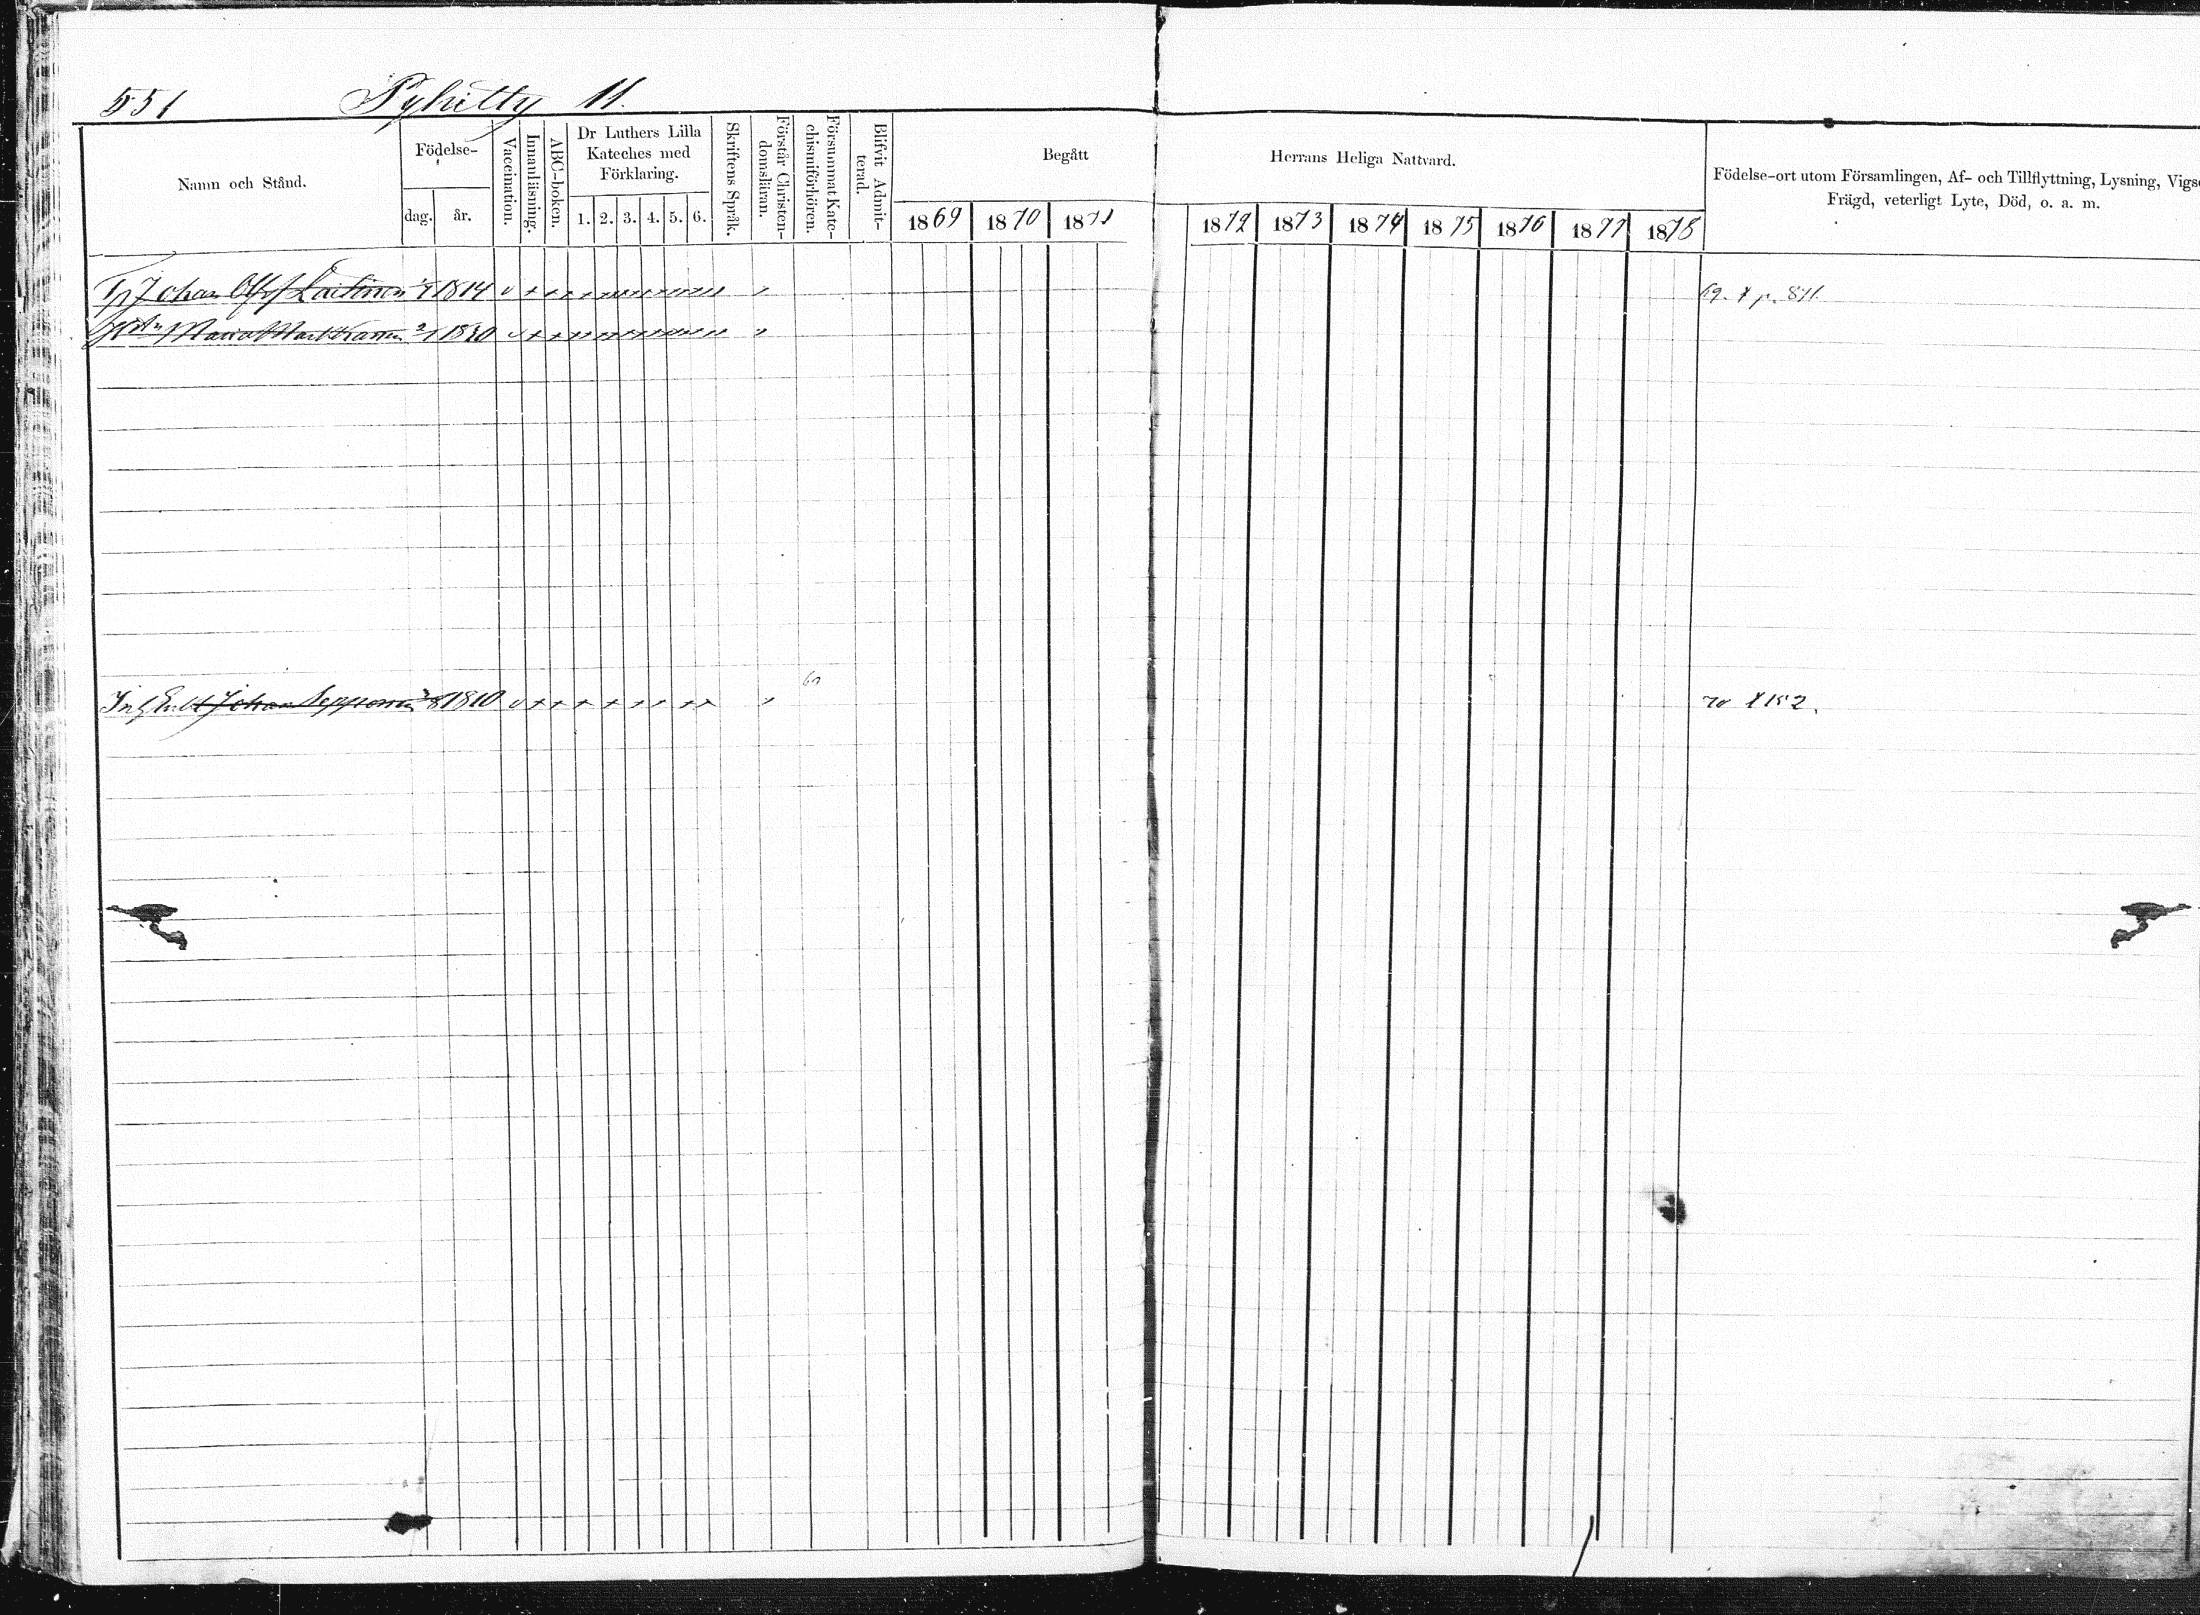 551 Pyhitty 11.
Namn och Stånd.
Födelse-
dag. år.
Vaccination.
Innanläsning.
ABC-boken.
Dr Luthers Lilla
Kateches med
Förklaring.
1. 2. 3. 4. 5. 6.
Skriftens Språk.
Förstår Christen-
domsläran.
Försummat Kate-
chismiförhören.
Blifvit Admit-
terad.
Begått Herrans Heliga Nattvard.
1869 1870 1871 1872 1873 1874 1875 1876 1877 1878
Födelse-ort utom Församlingen, Af- och Tillflyttning, Lysning, Vigse
Frägd, veterligt Lyte, Död, o. a. m.
Johan Olofs Laitinen 1814 69. X p. 871.
Maria 1820
Johan Sepponen 1810 70 X 152.